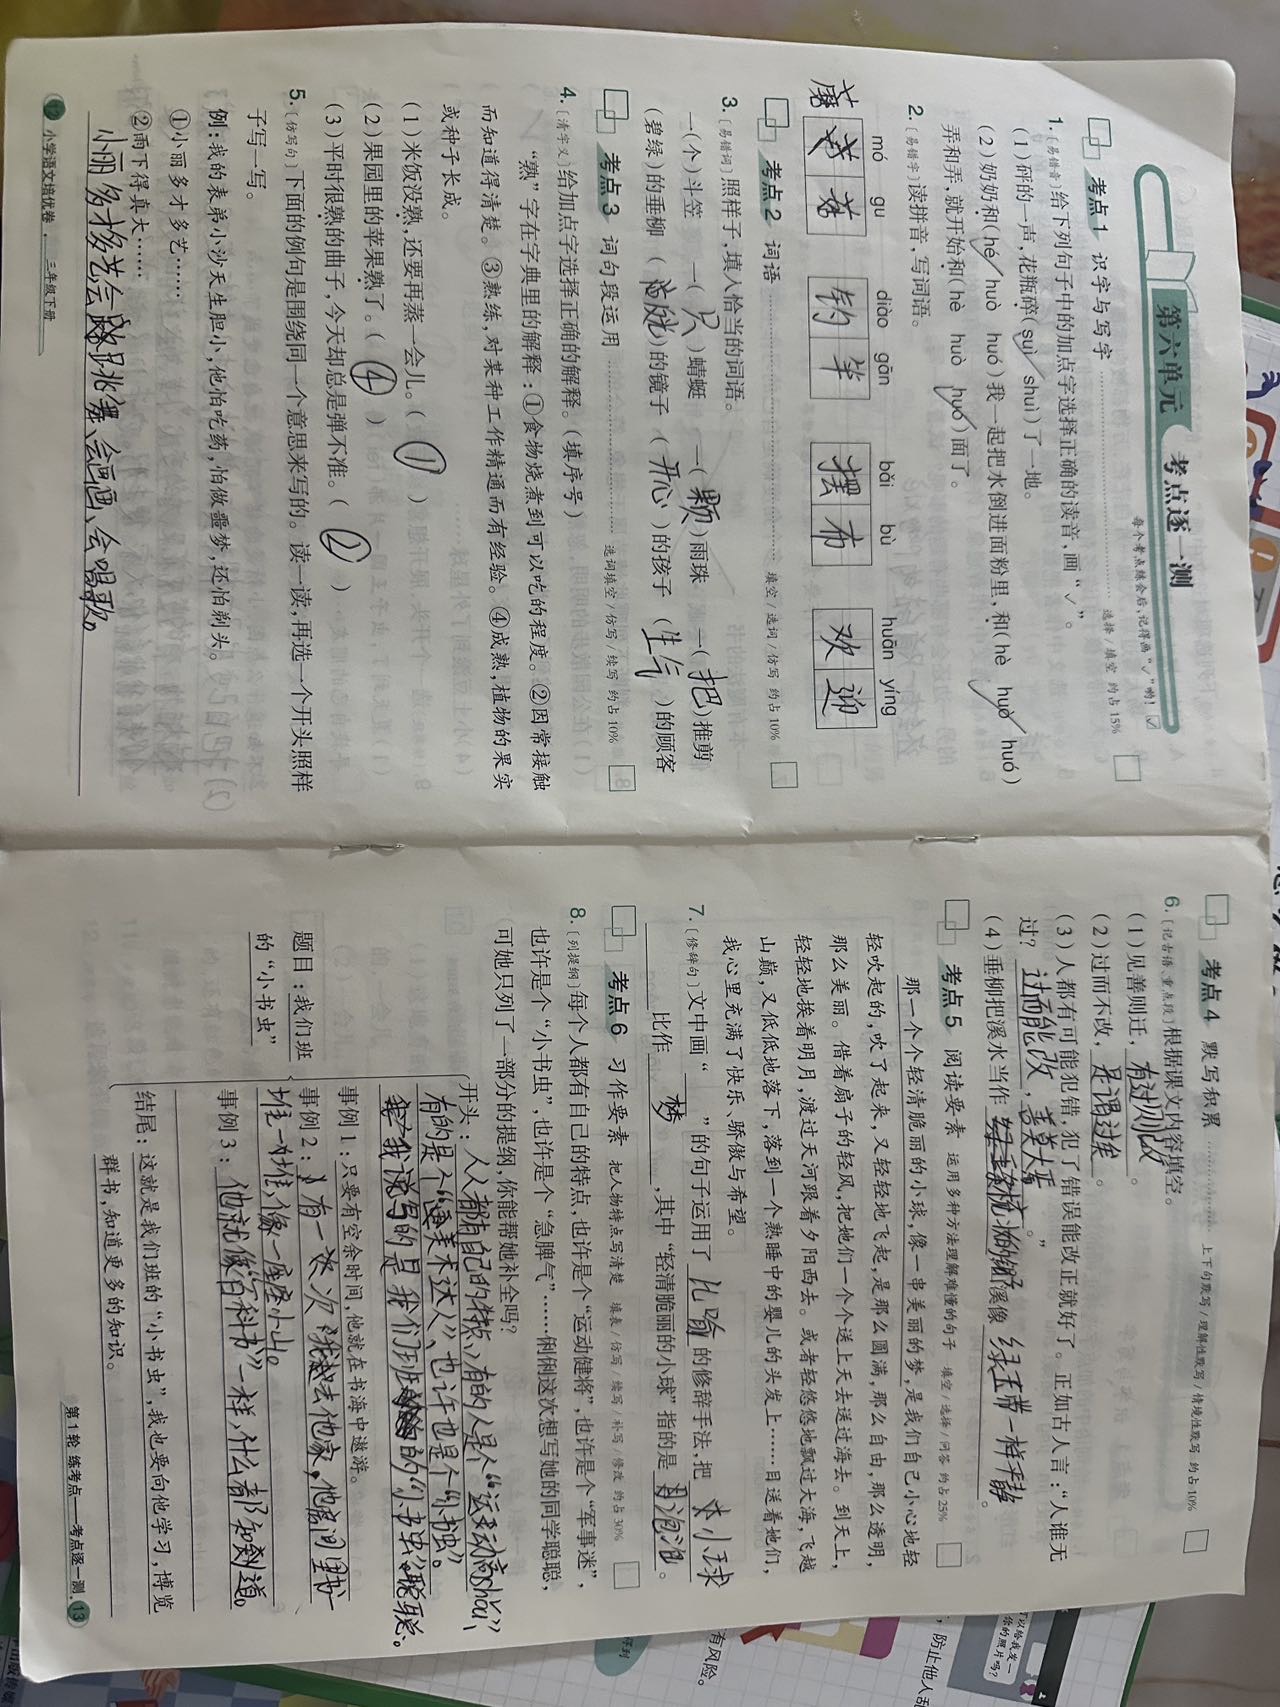 第六单元 考点逐一测
每个考点练会后,记得画“✓”哟! ✓
考点1 识字与写字
选择/填空 约占15%
1.〔易错音〕给下列句子中的加点字选择正确的读音,画“✓”。
(1)砰的一声,花瓶碎(suì✓ shuì)了一地。
(2)奶奶和(hé✓ huò huó)我一起把水倒进面粉里,和(hè huò✓ huó)
弄和弄,就开始和(hè huò huó✓)面了。
2.〔易错字〕读拼音,写词语。
mó gu diào gān bǎi bù huān yíng
蘑 菇 钓 竿 摆 布 欢 迎
蘑
考点2 词语
填空/选词/仿写 约占10%
3.〔易错词〕照样子,填入恰当的词语。
一(个)斗笠 一(只)蜻蜓 一(颗)雨珠 一(把)推剪
(碧绿)的垂柳 ( )的镜子 (开心)的孩子 (生气)的顾客
考点3 词句段运用
选词填空/仿写/续写 约占10%
4.〔清字义〕给加点字选择正确的解释。(填序号)
“熟”字在字典里的解释:①食物烧煮到可以吃的程度。②因常接触
而知道得清楚。③熟练,对某种工作精通而有经验。④成熟,植物的果实
或种子长成。
(1)米饭没熟,还要再蒸一会儿。(①)
(2)果园里的苹果熟了。(④)
(3)平时很熟的曲子,今天却总是弹不准。(②)
5.〔仿写句〕下面的例句是围绕同一个意思来写的。读一读,再选一个开头照样
子写一写。
例:我的表弟小沙天生胆小,他怕吃药,怕做噩梦,还怕剃头。
①小丽多才多艺……
②雨下得真大……
小丽多才多艺,会跳舞、会画画、会唱歌。
12 小学语文培优卷 三年级下册
考点4 默写积累
上下句默写/理解性默写/情境性默写 约占10%
6.〔记古语、重点段〕根据课文内容填空。
(1)见善则迁,有过则改。
(2)过而不改,是谓过矣。
(3)人都有可能犯错,犯了错误能改正就好了。正如古人言:“人谁无
过?过而能改,善莫大焉。”
(4)垂柳把溪水当作梳妆的镜子溪像绿玉带一样平静。
考点5 阅读要素
运用多种方法理解难懂的句子 填空/选择/问答 约占25%
那一个个轻清脆丽的小球,像一串美丽的梦,是我们自己小心地轻
轻吹起的,吹了起来,又轻轻地飞起,是那么圆满,那么自由,那么透明,
那么美丽。借着扇子的轻风,把她们一个个送上天去送过海去。到天上,
轻轻地挨着明月,渡过天河跟着夕阳西去。或者轻悠悠地飘过大海,飞越
山巅,又低低地落下,落到一个熟睡中的婴儿的头发上……目送着她们,
我心里充满了快乐、骄傲与希望。
7.〔修辞句〕文中画“ ”的句子运用了比喻的修辞手法,把小球
比作梦,其中“轻清脆丽的小球”指的是泡泡。
考点6 习作要素
把人物特点写清楚 填表/仿写/续写/补写/修改 约占30%
8.〔列提纲〕每个人都有自己的特点,也许是个“运动健将”,也许是个“军事迷”,
也许是个“小书虫”,也许是个“急脾气”……俐俐这次想写她的同学聪聪,
可她只列了一部分的提纲,你能帮她补全吗?
题目:我们班
的“小书虫”
开头:人人都有自己的特点,有的人是“运动高shǒu”、
有的是个“美术达人”、也许也是个“小书虫”。
我说写的是我们班的“小书虫”聪聪。
事例1:只要有空余时间,他就在书海中遨游。
事例2:有一次,我去他家,他房间里书
堆一堆,像一座座小山。
事例3:他就像“百科书”一样,什么都知道。
结尾:这就是我们班的“小书虫”,我也要向他学习,博览
群书,知道更多的知识。
第1轮 练考点——考点逐一测 13
有风险。
,防止他人乱